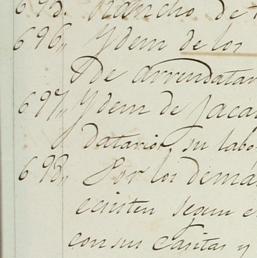 695. Rancho de
696,, Ydem de los
de arrendatar
697,, Ydem de Jaca
datarios, su labo
698,, Por los dema
ecsisten segun e
con sus casitas y